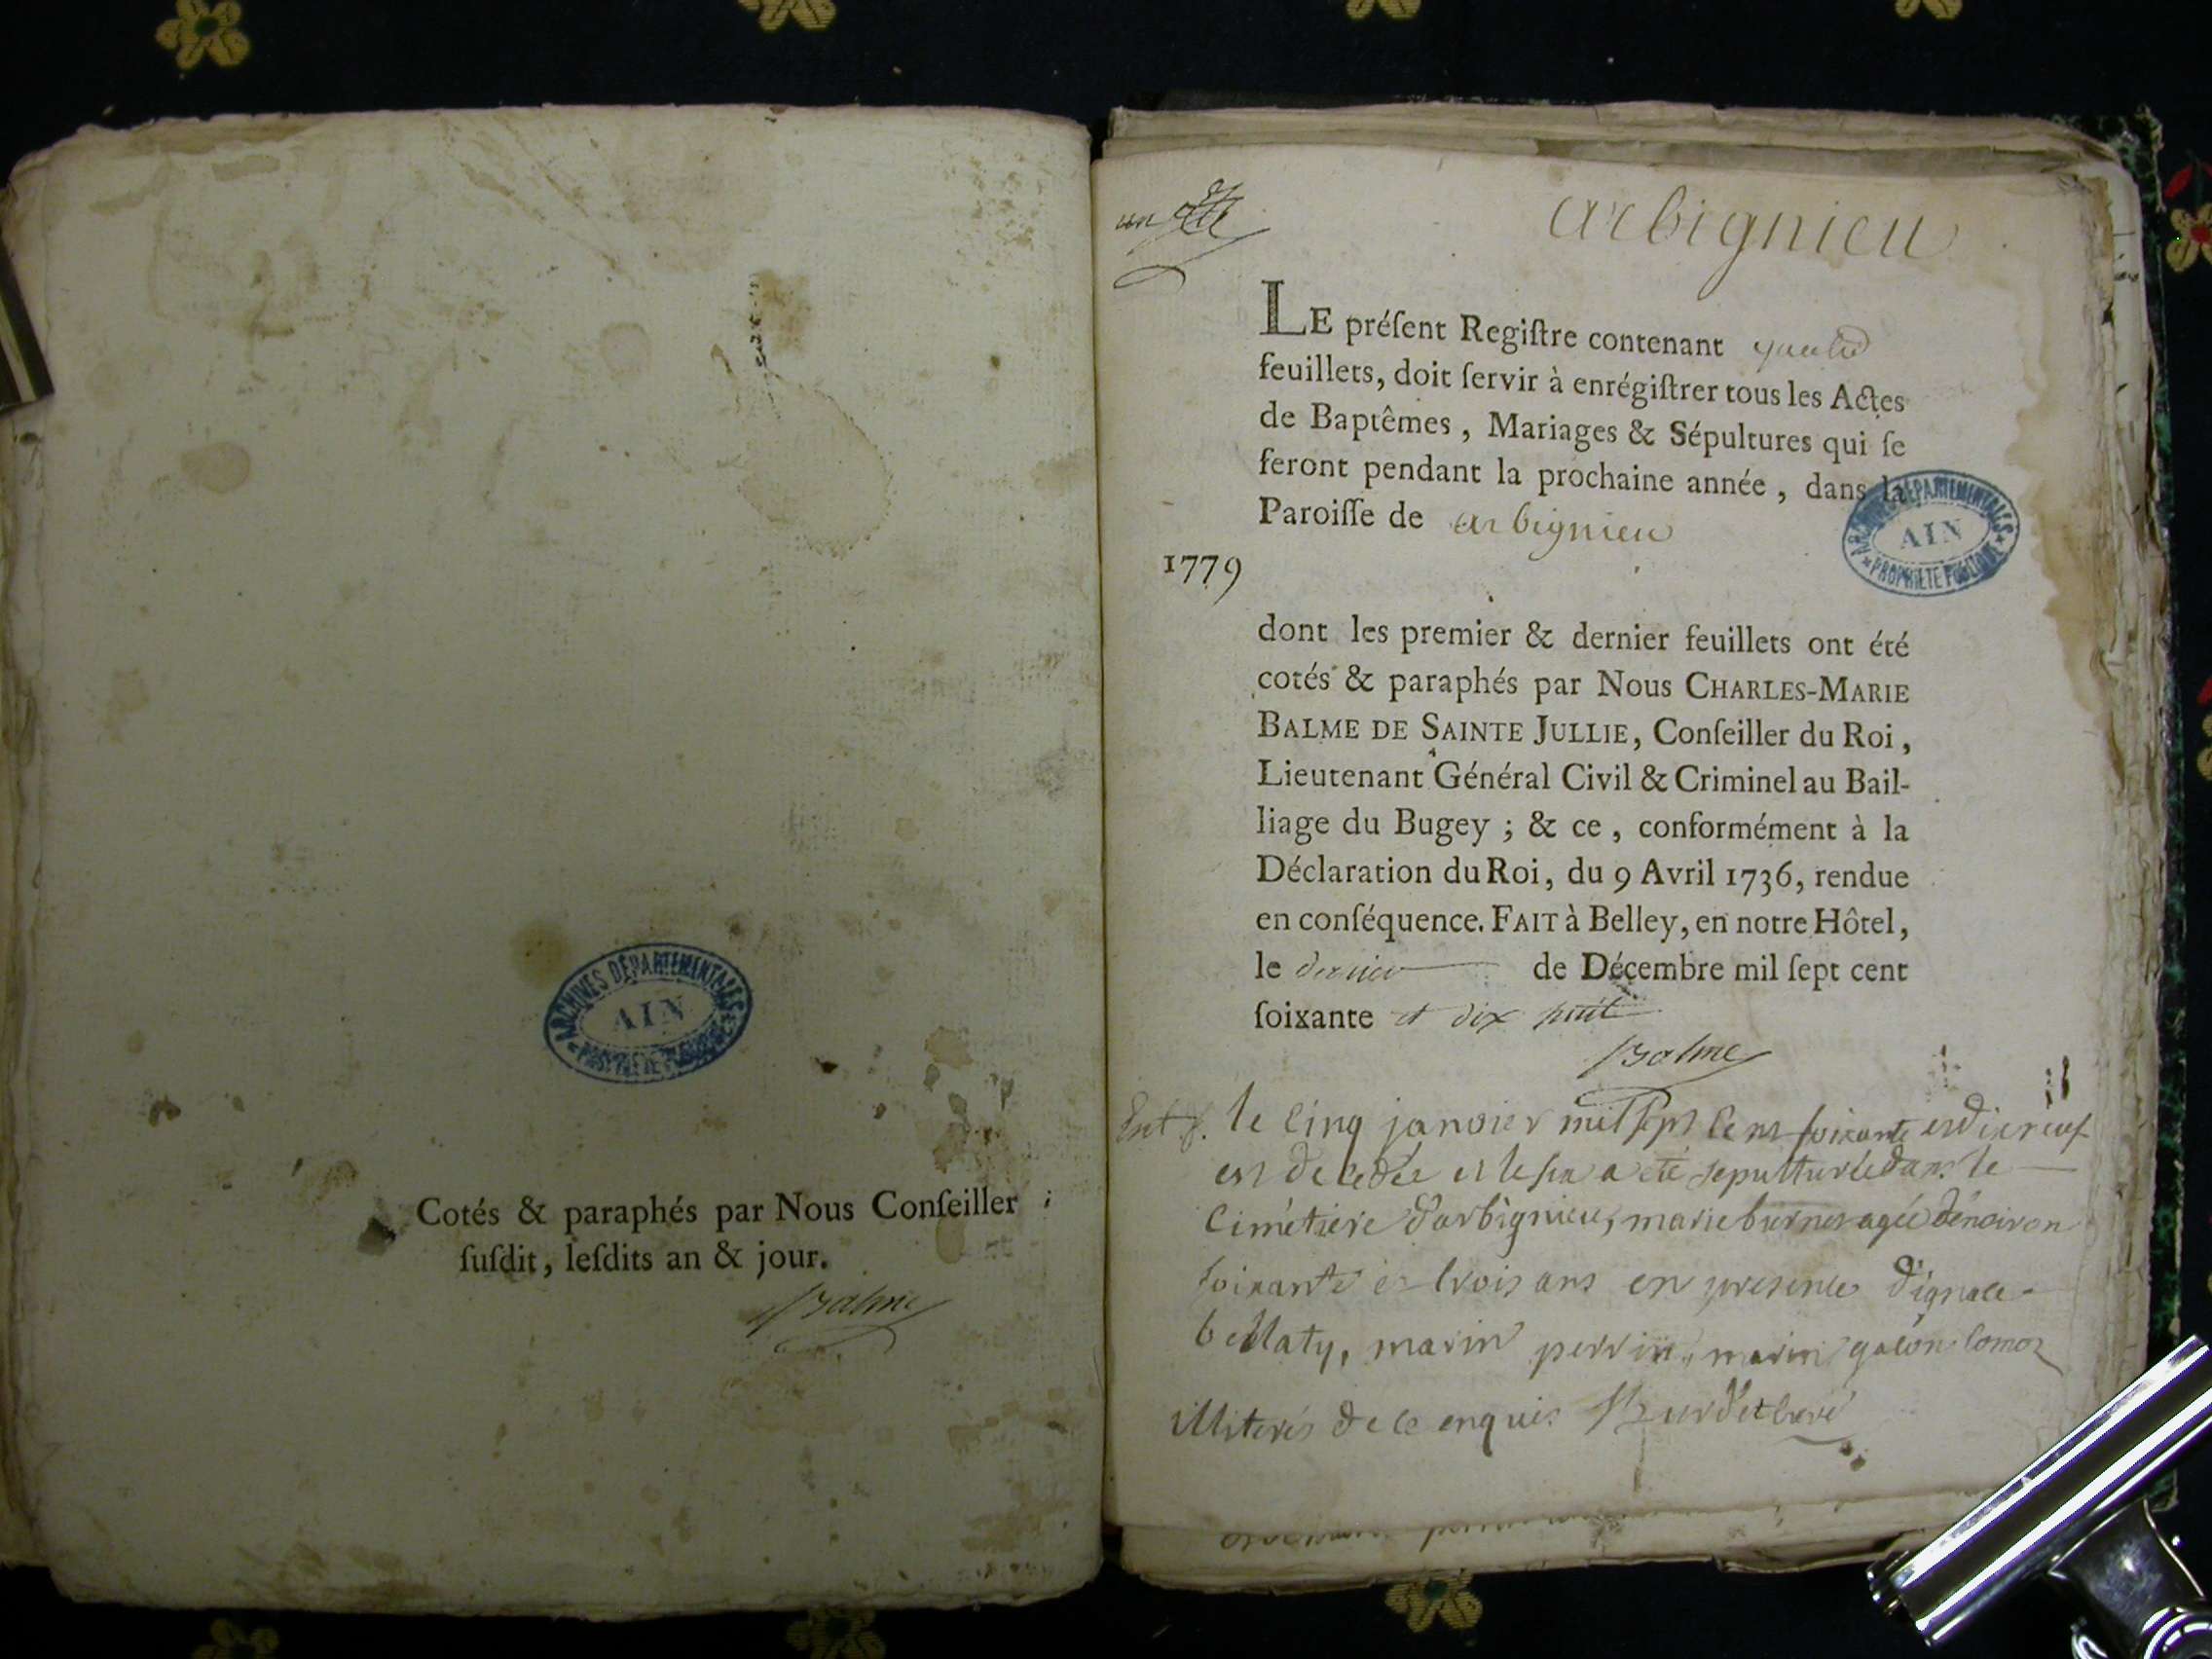 Cotés & paraphés par Nous Conſeiller
ſuſdit, leſdits an & jour.
Balme
ARCHIVES DÉPARTEMENTALES
AIN
PROPRIÉTÉ PUBLIQUE
un
arbignieu
LE préſent Regiſtre contenant quatre
feuillets, doit ſervir à enrégiſtrer tous les Actes
de Baptêmes, Mariages & Sépultures qui ſe
feront pendant la prochaine année, dans la
Paroiſſe de arbignieu
ARCHIVES DÉPARTEMENTALES
AIN
PROPRIÉTÉ PUBLIQUE
1779
dont les premier & dernier feuillets ont été
cotés & paraphés par Nous CHARLES-MARIE
BALME DE SAINTE JULLIE, Conſeiller du Roi,
Lieutenant Général Civil & Criminel au Bail-
liage du Bugey ; & ce, conformément à la
Déclaration du Roi, du 9 Avril 1736, rendue
en conſéquence. FAIT à Belley, en notre Hôtel,
le dernier de Décembre mil ſept cent
ſoixante et dix huit
Balme
le cinq janvier mil sept cent soixante et dix neuf
est decedée et le six a été sepulturée dans le
cimetiere d'arbignieu, marie burnet agée d'environ
soixante et trois ans en presence d'ignace
bellaty, marin perrin, marin
illiterés de ce enquis Burdet curé